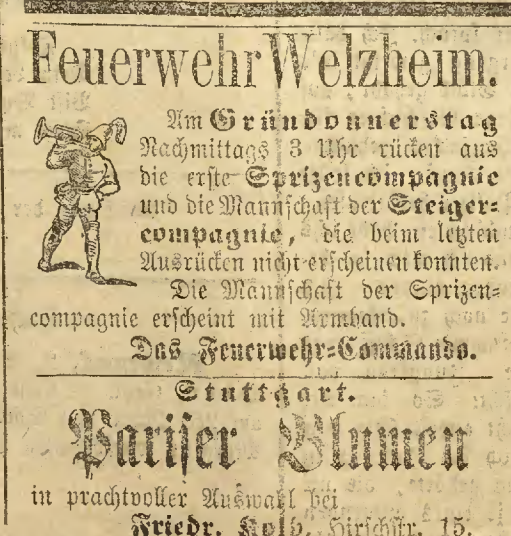 Feuerwehr Welzheim.
Am Gründonnerstag
Nachmittags 3 Uhr rücken aus
die erste Sprizencompagnie
und die Mannschaft der Steiger-
compagnie, die beim letzten
Ausrücken nicht erscheinen konnten.
Die Mannschaft der Sprizen-
compagnie erscheint mit Armband.
Das Feuerwehr-Commando.
Stuttgart.
Pariser Blumen
in prachtvoller Auswahl bei
Friedr. Kolb, Hirschstr. 15.